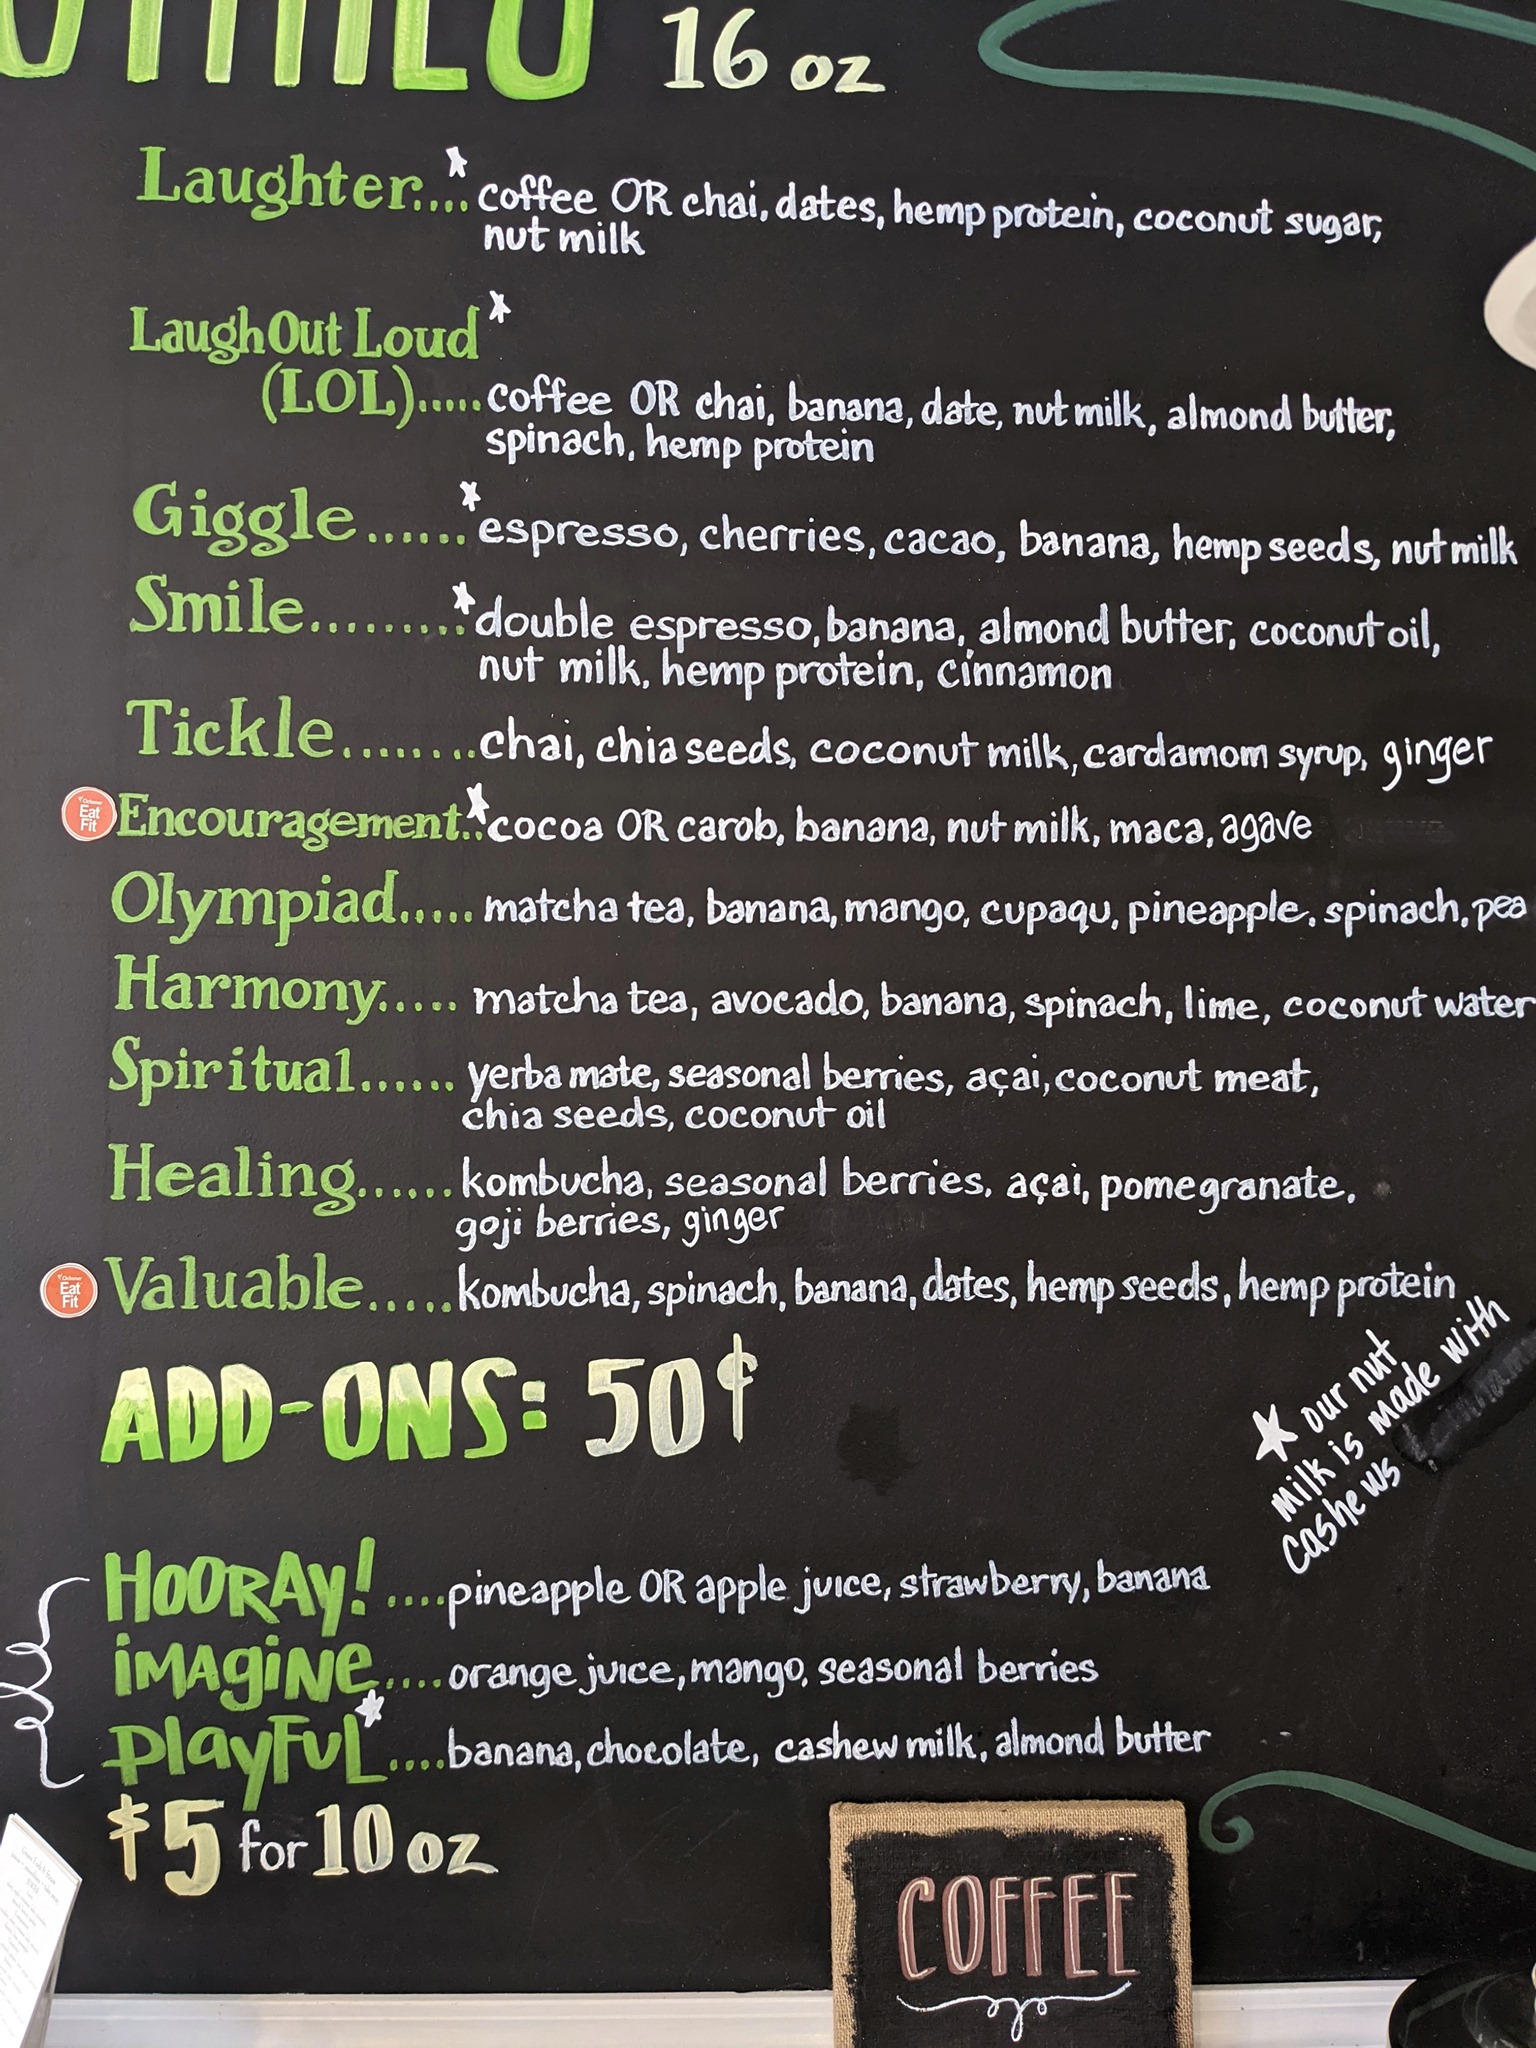 16 oz
Laughter.... coffee OR chai, dates, hemp protein, coconut sugar,
nut milk
Laugh Out Loud
(LOL)..... coffee OR chai, banana, date, nut milk, almond butter,
spinach, hemp protein
Giggle...... espresso, cherries, cacao, banana, hemp seeds, nut milk
Smile......... double espresso, banana, almond butter, coconut oil,
nut milk, hemp protein, cinnamon
Tickle........ chai, chia seeds, coconut milk, cardamom syrup, ginger
Ochsner
Eat
Fit
Encouragement.. cocoa OR carob, banana, nut milk, maca, agave
Olympiad..... matcha tea, banana, mango, cupaqu, pineapple, spinach, pea
Harmony..... matcha tea, avocado, banana, spinach, lime, coconut water
Spiritual...... yerba mate, seasonal berries, açai, coconut meat,
chia seeds, coconut oil
Healing...... kombucha, seasonal berries, açai, pomegranate,
goji berries, ginger
Ochsner
Eat
Fit
Valuable..... kombucha, spinach, banana, dates, hemp seeds, hemp protein
ADD-ONS: 50¢
our nut
milk is made with
cashews
HOORAY! .... pineapple OR apple juice, strawberry, banana
iMAgiNe.... orange juice, mango, seasonal berries
PlayFuL.... banana, chocolate, cashew milk, almond butter
$5 for 10 oz
COFFEE